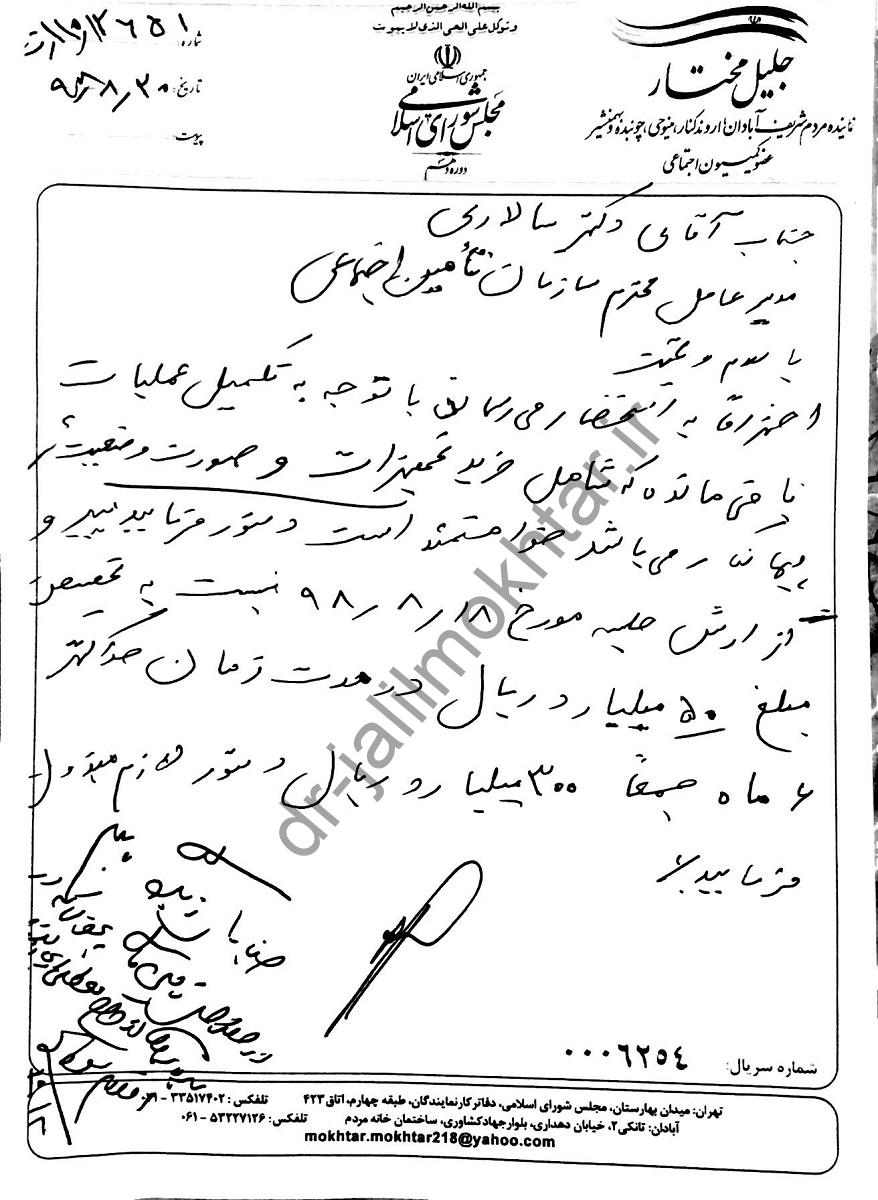 بسم الله الرحمن الرحیم
و توکل علی الحی الذی لا یموت
جمهوری اسلامی ایران
مجلس شورای اسلامی
دوره دهم
جلیل مختار
نماینده مردم شریف آبادان، اروندکنار، منیوحی، چوئبده و بهمنشیر
عضو کمیسیون اجتماعی
شماره:
تاریخ: ۹۸/۸/۳۰
پیوست:
جناب آقای دکتر سالاری
مدیر عامل محترم سازمان تأمین اجتماعی
با سلام و تحیت
احتراماً به استحضار می‌رساند با توجه به تکمیل عملیات
باقی مانده که شامل خرید تجهیزات و صورت وضعیت
پیمانکار می‌باشد خواهشمند است دستور فرمایید پیرو
گزارش جلسه مورخ ۹۸/۸/۱۸ نسبت به تخصیص
مبلغ ۵۰ میلیارد ریال در مدت زمان حداکثر
۶ ماه جمعاً ۳۰۰ میلیارد ریال دستور لازم مبذول
فرمایید.
dr-jalilmokhtar.ir
شماره سریال: ۰۰۰۶۲۵۴
تهران: میدان بهارستان، مجلس شورای اسلامی، دفاتر کار نمایندگان، طبقه چهارم، اتاق ۴۲۳ تلفکس: ۳۳۵۱۷۴۰۲ - ۰۲۱
آبادان: تانکی۲، خیابان دهداری، بلوار جهاد کشاورزی، ساختمان خانه مردم تلفکس: ۵۳۲۲۷۱۲۶ - ۰۶۱
mokhtar.mokhtar218@yahoo.com